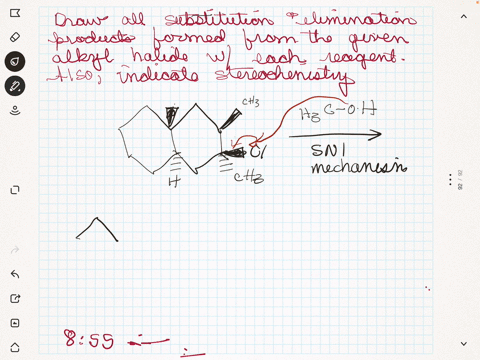 Draw all substitution & elimination
products formed from the given
alkyl halide w/ each reagent.
Also, indicate stereochemistry
CH3
H3C-O-H
Cl
SN1
mechanism
H
CH3
8:55